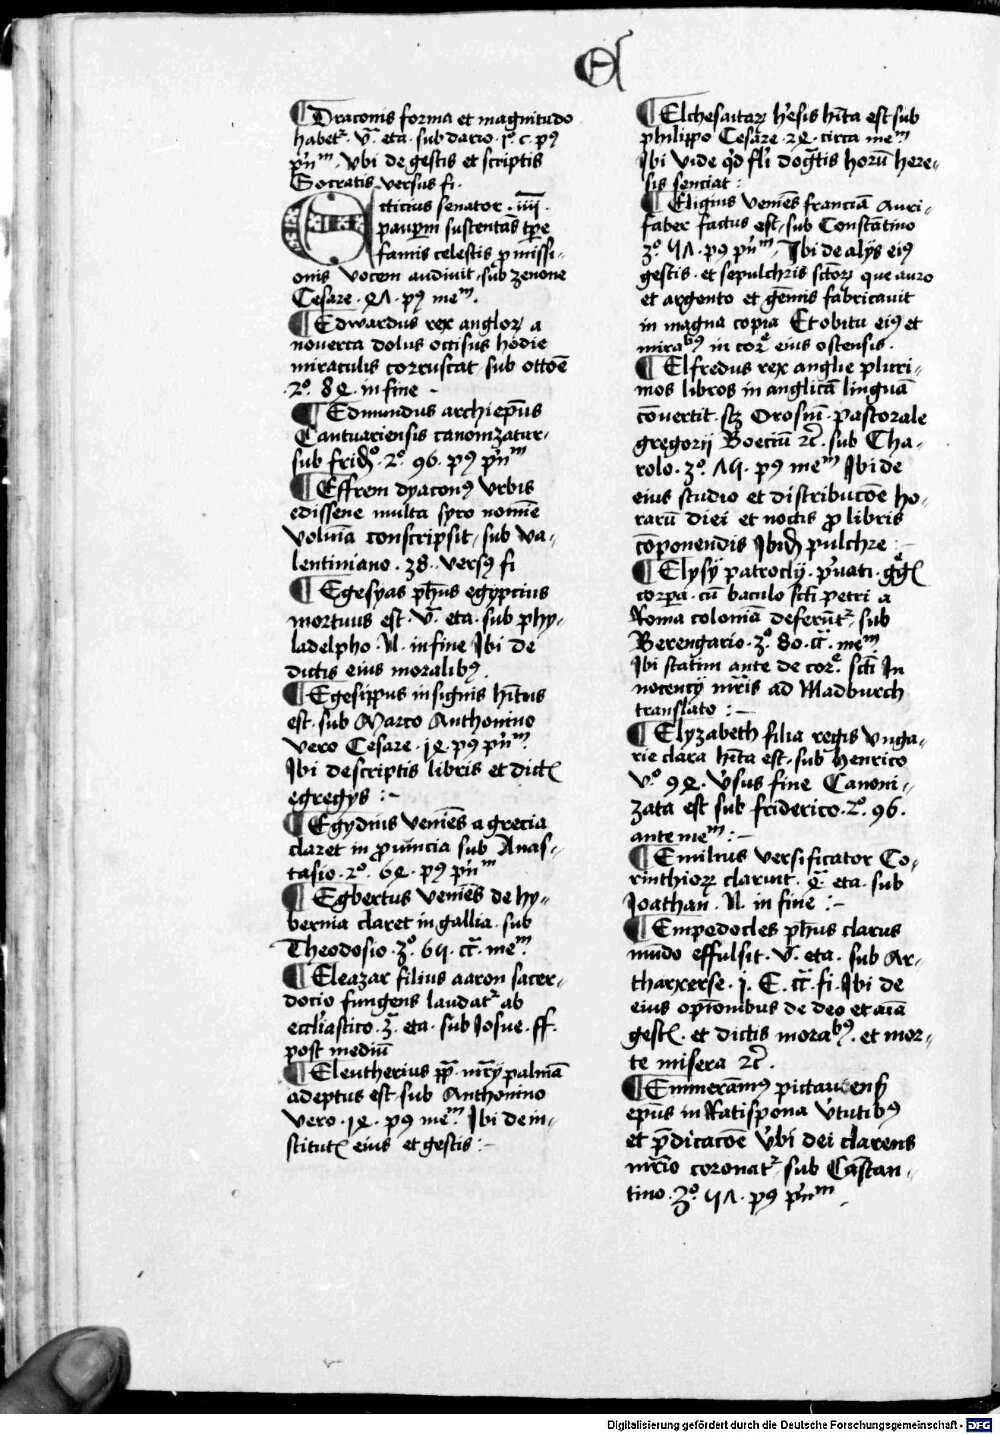 ¶ Draconis forma et magnitudo
habetr. v̄. eta. sub dario. p̊. c. pꝰ
pn̄m. vbi de gestis et scriptis
Socratis versus fi.
Ecticius senator. iiij.
paupm̄ sustentās tp̄e
famis celestis ꝓmissi-
onis vocem audiuit. sub zenone
Cesare. ꝰ meͫ.
¶ Edwardus rex angloꝝ a
nouerca dolus occisus hodie
miraculis corruscat sub ottoē
.2o. 82. in fine -
¶ Edmundus archiepūs
Cantuariensis canonizatur.
sub frid̄o. 2o. 96. pꝰ pn̄m
¶ Effrem dyaconꝰ vrbis
edissene multa syro nomīe
volum̄a conscripsit. sub va-
lentiniano. 38. versꝰ fi
¶ Egesyas ph̄us egyptius
mortuus est. v̄. eta. sub phy-
ladelpho. N. in fine Ibi de
dictis eius moralibꝰ.
¶ Egesippus insignis hītus
est. sub Marco Anthonino
vero Cesare. 12. pꝰ pn̄m.
Ibi descriptis libris et dict
egregys :-
¶ Egydius veniēs a grecia
claret in ꝓuincia sub Anas-
tasio. 2o. 62. pꝰ pn̄m
¶ Egbertus veniēs de hy-
bernia claret in gallia. sub
Theodosio. 3o. 65. cc̄. mem.
¶ Eleazar filius aaron sacer-
docio fungens laudatr ab
eccliastico. 3̄. eta. sub Iosue. ff.
post mediū
¶ Eleutherius pp̄. mr̄ij palmā
adeptus est. sub Anthonino
vero. 12. pꝰ mem. Ibi de in-
stitut eius et gestis :-
El
¶ Elchesaitaꝝ hesis hīta est sub
philippo Cesare. 22. circa mem.
Ibi vide qd fl'i dogtis horū here-
sis senciat :
¶ Eligius veniēs franciā auri-
faber factus est. sub Constātino
3o. 57. pꝰ pn̄m. Ibi de alijs eiꝰ
gestis. et sepulchris sctoꝝ que auro
et argento et gēmis fabricauit
in magna copia Et obitu eiꝰ et
mirabꝰ in corē eius ostensis.
¶ Elfredus rex anglie pluri-
mos libros in anglicā linguā
cōuertit. scz Orosiū. pastorale
gregorij Boeciū ⁊c. sub Cha-
rolo. 3o. 75. pꝰ mem Ibi de
eius studio et distribucōe ho-
rarū diei et noctis ꝓ libris
cōponendis Ibid pulchre :-
¶ Elysij patrocly. pͥuati.
corpa. cū baculo sctī petri a
Roma coloniā deferūtr. sub
Berengario. 3o. 80. cc̄. mem.
Ibi statim ante de corē. sctī In
nocencij mr̄is ad Madburch
translato :-
¶ Elyzabeth filia regis vnga-
rie clara hīta est. sub henrico
v.o 92. v̄sus fine Canoni-
zata est sub friderico. 2o. 96.
ante mem :-
¶ Emilius versificator Co-
rinthioꝝ claruit. 4̄. eta. sub
Ioathan. N. in fine :-
¶ Empedocles ph̄us clarus
mūdo effulsit. v̄. eta. sub Ar-
tharxerse. i. C. cc̄. fi. Ibi de
eius opīonibus de deo et aīa
gest. et dictis morabꝰ. et mor-
te misera ⁊c.
¶ Emmeramꝰ pictauens
epūs in Ratispona v̄tutibꝰ
et p̄dicacōe v̄bi dei clarens
mr̄io coronatr. sub Constan-
tino. 3o. 57. pꝰ pn̄m.
Digitalisierung gefördert durch die Deutsche Forschungsgemeinschaft - DFG